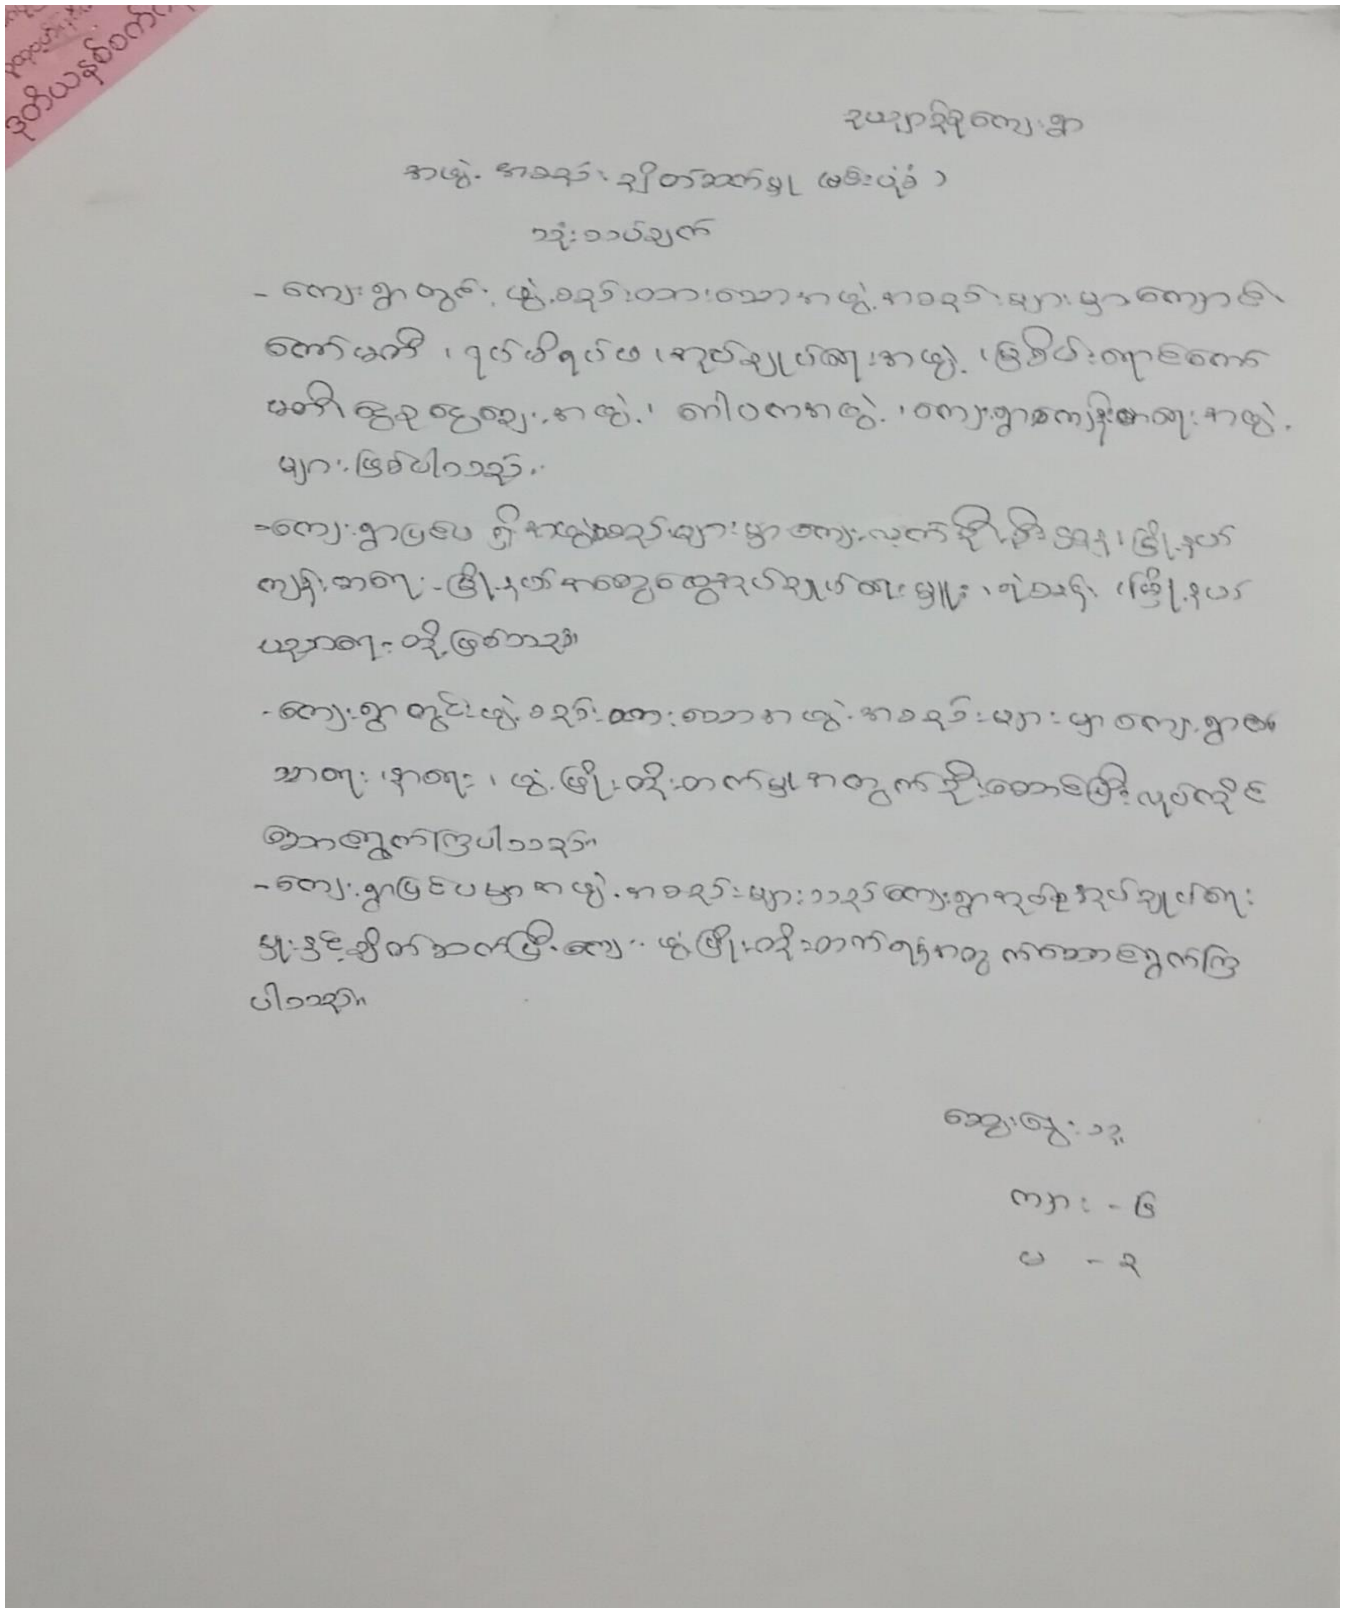 ဒုတိယနှစ်ဝက်
ကျေးရွာ
အဖွဲ့အစည်းချိတ်ဆက်မှု (မင်းပုံစံ)
သုံးသပ်ချက်
- ကျေးရွာတွင်းဖွဲ့စည်းထားသောအဖွဲ့အစည်းများမှာကျောင်း
ကော်မတီ၊ ရပ်မိရပ်ဖ၊ အုပ်ချုပ်ရေးအဖွဲ့၊ မြစိမ်းရောင်ကော်
မတီ၊ ငွေစုငွေချေးအဖွဲ့၊ ဂေါပကအဖွဲ့၊ ကျေးရွာကျန်းမာရေးအဖွဲ့
များဖြစ်ပါသည်။
- ကျေးရွာပြင်ပရှိအဖွဲ့အစည်းများမှာကျေးလက်ဦးစီးဌာန၊ မြို့နယ်
ကျန်းမာရေး - မြို့နယ်အထွေထွေအုပ်ချုပ်ရေးမှူး၊ ရဲစခန်း၊ မြို့နယ်
ပညာရေးတို့ဖြစ်သည်။
- ကျေးရွာတွင်းဖွဲ့စည်းထားသောအဖွဲ့အစည်းများမှာကျေးရွာ
သာရေး၊ နာရေး၊ ဖွံ့ဖြိုးတိုးတက်မှုအတွက်ဦးဆောင်ပြီးလုပ်ကိုင်
ဆောင်ရွက်ကြပါသည်။
- ကျေးရွာပြင်ပမှာအဖွဲ့အစည်းများသည်ကျေးရွာအုပ်စုအုပ်ချုပ်ရေး
မှူးနှင့်ချိတ်ဆက်ပြီးကျေးဖွံ့ဖြိုးတိုးတက်ရန်အတွက်ဆောင်ရွက်ကြ
ပါသည်။
ဆွေးနွေးသူ
ကျား - ၆
မ - ၃